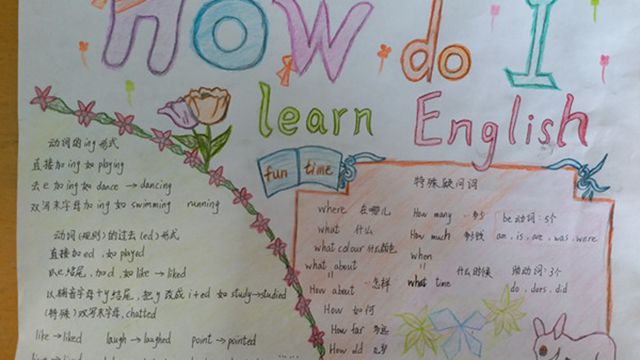 How do I
learn English
动词的ing形式
直接加ing 如 playing
去e加ing 如 dance → dancing
双写末字母加ing 如 swimming running
动词(规则)的过去(ed)形式
直接加ed,如played
以e结尾,加d,如like → liked
以辅音字母+y结尾,把y改成i+ed 如study→studied
(特殊)双写末字母,chatted
like → liked laugh → laughed point → pointed
fun time
特殊疑问词
where 在哪儿
what 什么
what colour 什么颜色
what about
How about 怎样
How 如何
How far 多远
How old 几岁
How many 多少
How much 多少钱
when
what time 什么时候
be动词:5个
am, is, are, was, were
助动词:3个
do, does, did